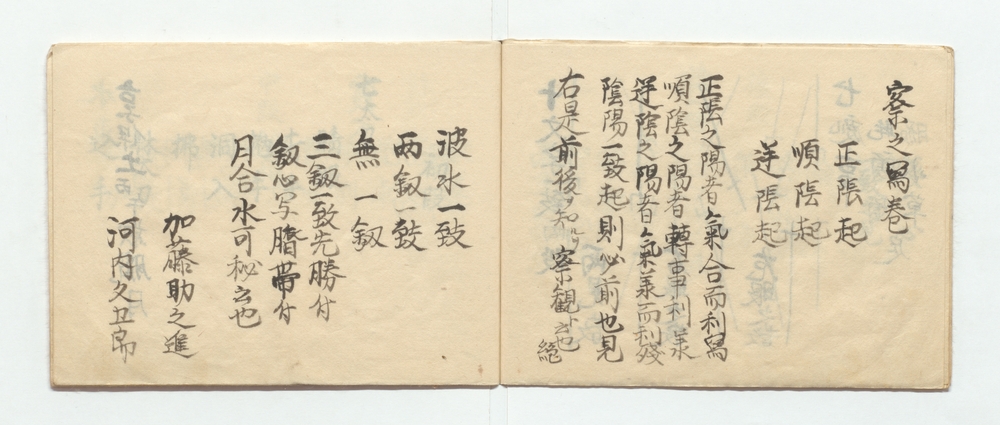 察之写巻
正陰起
順陰起
逆陰起
正陰之陽者氣合而利写
順陰之陽者轉事利義
逆陰之陽者氣義而利殘
陰陽一致起則必前也見
右是前後ヲ知ルヲ察観ト云也
絶
波水一致
両釼一致
無一釼
三釼一致先勝付
釼心写臍帯付
月合水可秘云也
加藤助之進
河内久卫郎